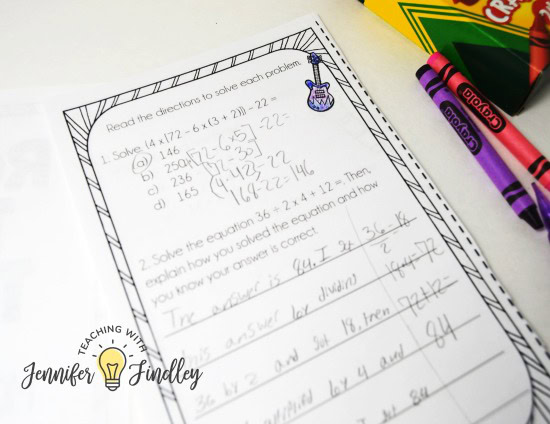 Read the directions to solve each problem.
1. Solve (4 x [72 - 6 x (3 + 2)]) - 22 =
a) 146
b) 250
c) 236
d) 165
[72-6x5]-22=
(4·42)-22
168-22=146
2. Solve the equation 36 ÷ 2 x 4 + 12 =. Then,
explain how you solved the equation and how
you know your answer is correct.
The answer is 84. I
answer by dividing
36 by 2 and 18, then
by 4 and
84
36
2
18·4=72
72+12=
84
TEACHING WITH
Jennifer Findley
CRA
Crayola
Crayola